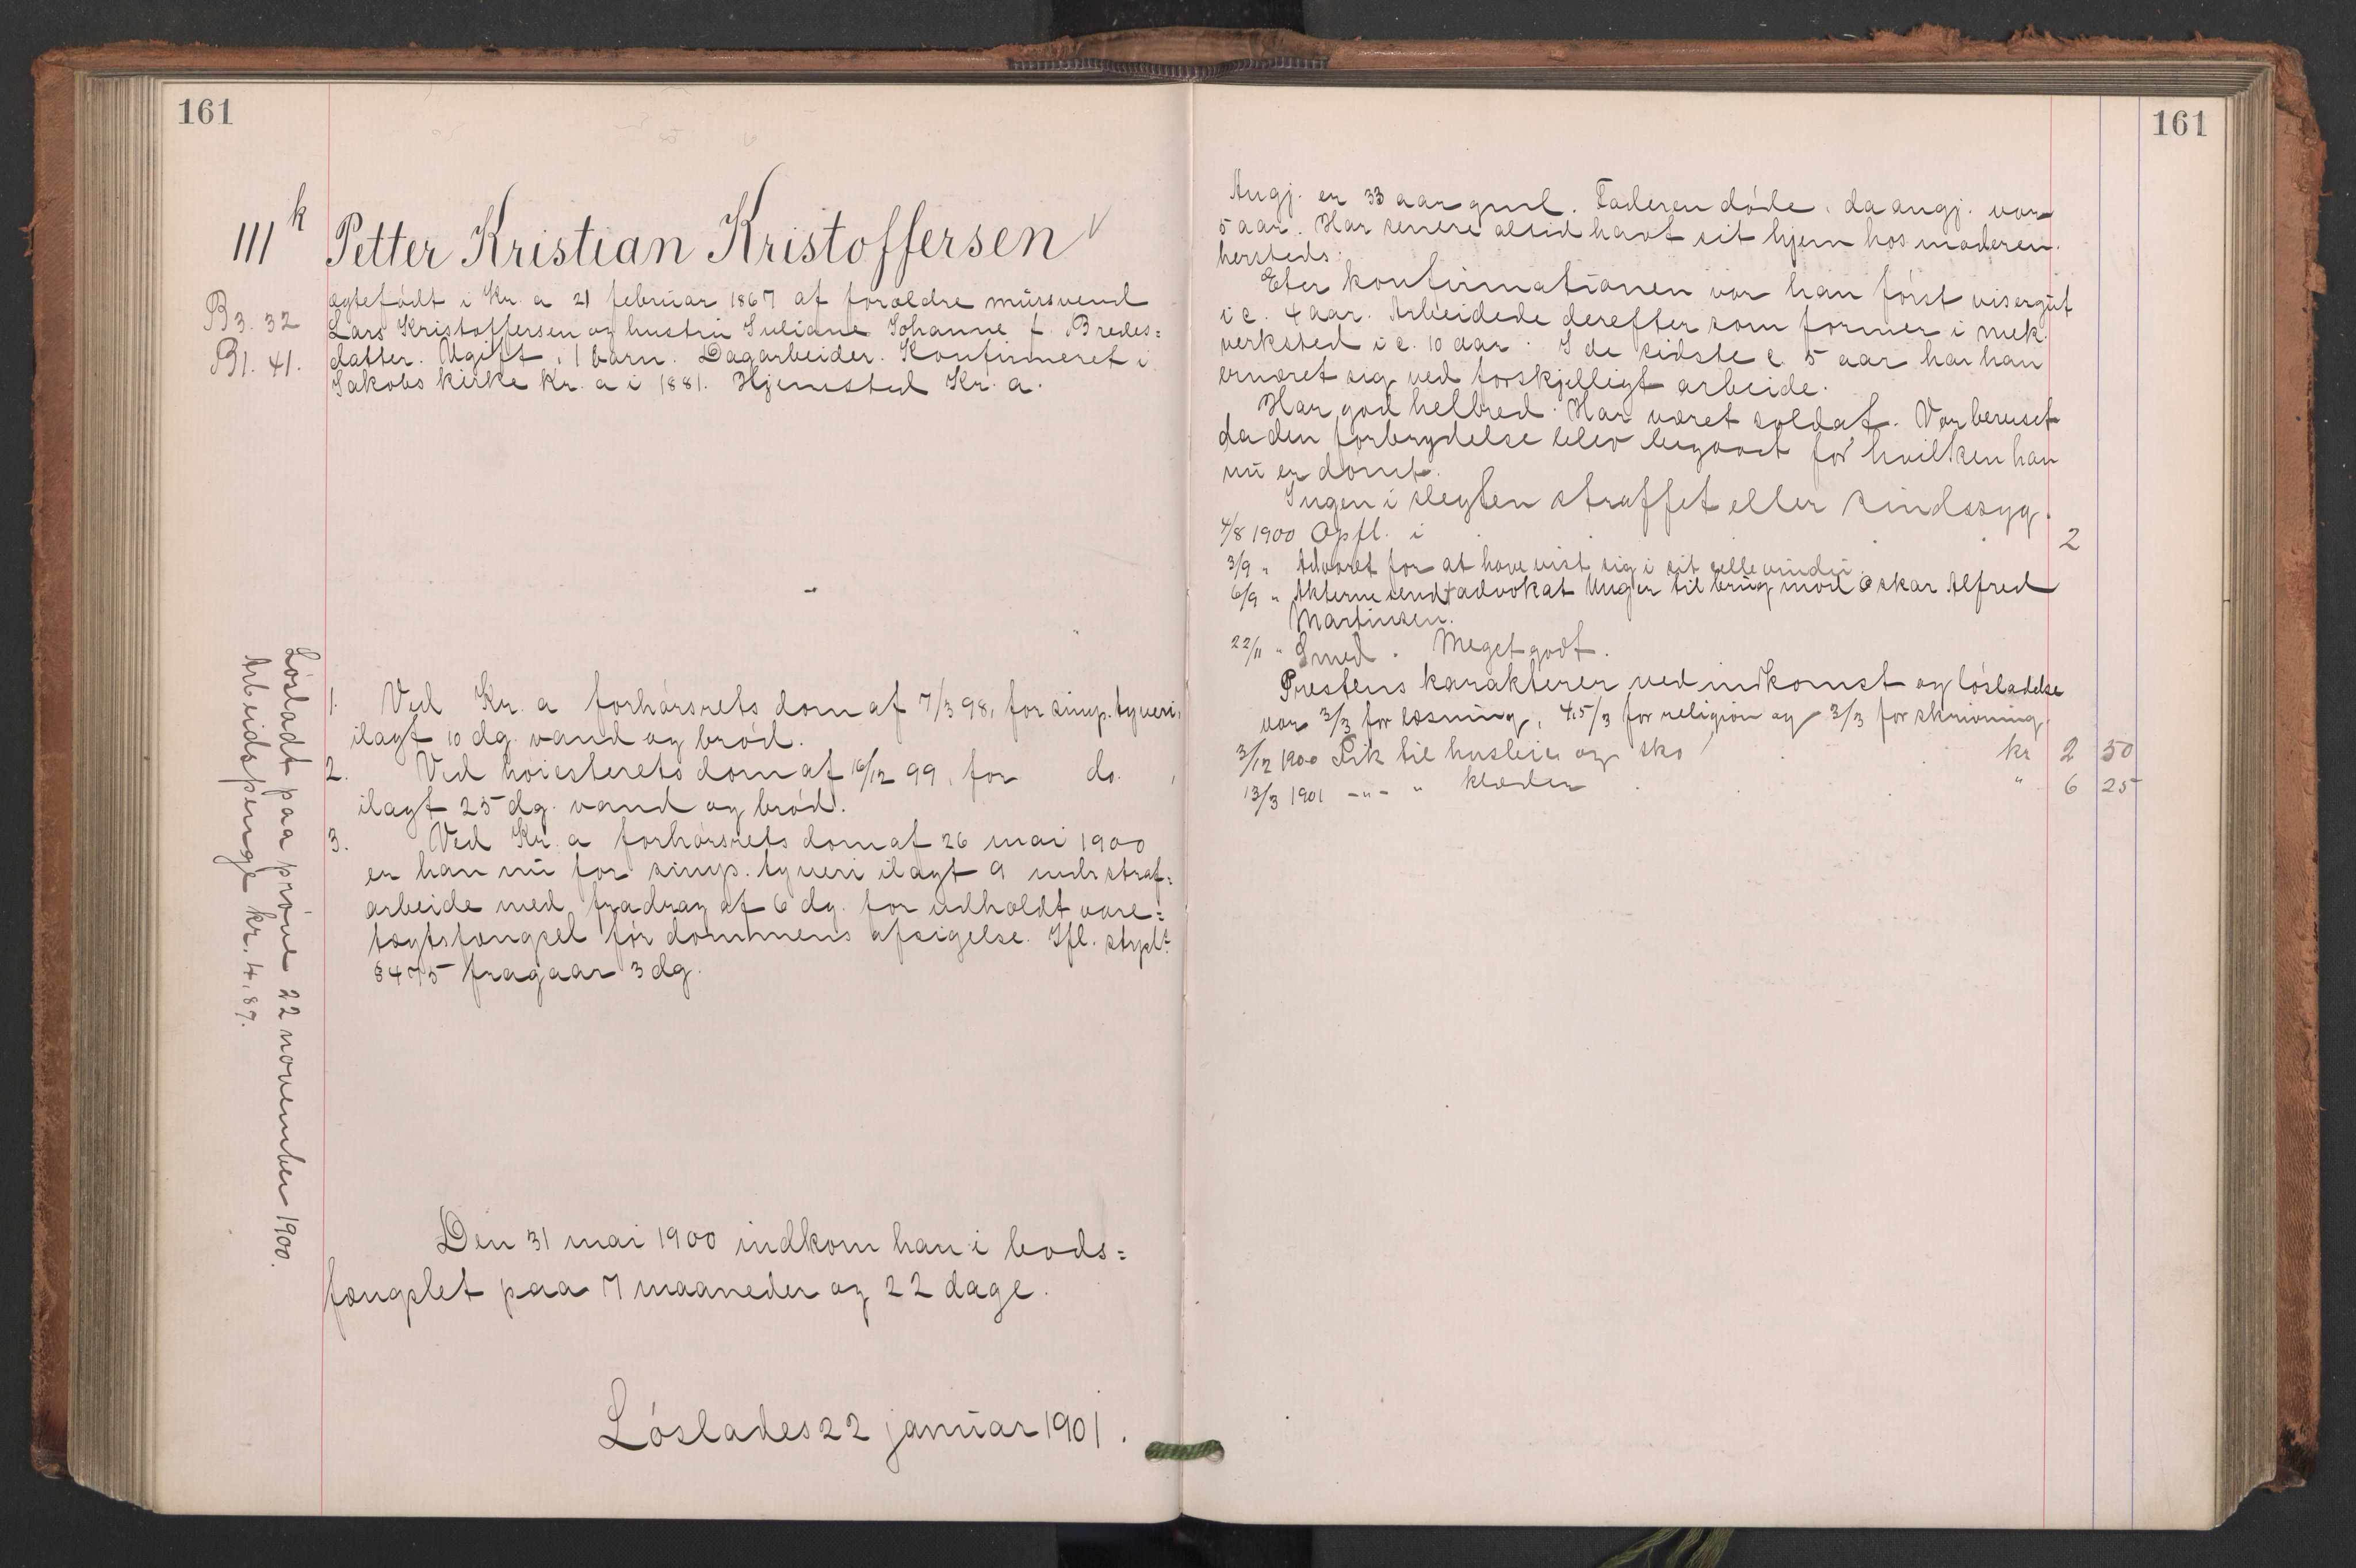 161
111 k Petter Kristian Kristoffersen
B3. 32
B1. 41.
ægtefødt i Kr. a 21 februar 1867 af forældre mursvend
Lars Kristoffersen og hustru Juliane Johanne f. Bredes=
datter. Ugift, 1 barn. Dagarbeider. Konfirmeret i
Jakobs kirke Kr. a i 1881. Hjemsted Kr. a.
1. Ved Kr. a forhørsrets dom af 7/3 98, for simp. tyveri,
ilagt 10 dg. vand og brød.
2. Ved høiesterets dom af 16/12 99, for do. ,
ilagt 25 dg. vand og brød.
3. Ved Kr. a forhørsrets dom af 26 mai 1900
er han nu for simp. tyveri ilagt 9 mdr. straf=
arbeide med fradrag af 6 dg. for udholdt vare=
tægtsfængsel før dommens afsigelse. Ifl. strpl.
§ 475 fragaar 3 dg.
Den 31 mai 1900 indkom han i bods=
fængslet paa 7 maaneder og 22 dage.
Løslades 22 januar 1901.
Løsladt paa prøve 22 november 1900.
Arbeidspenge kr. 4,87.
161
Angj. er 33 aar gml. Faderen døde, da angj. var
5 aar. Har senere altid havt sit hjem hos moderen
hersteds.
Efter konfirmationen var han først visergut
i c. 4 aar. Arbeidede derefter som former i mek.
verksted i c. 10 aar. I de sidste c. 5 aar har han
ernæret sig ved forskjelligt arbeide.
Har god helbred. Har været soldat. Var beruset
da den forbrydelse blev begaaet for hvilken han
nu er dømt.
Ingen i slegten straffet eller sindssyg.
4/8 1900 Opfl. i . . . 2
3/9 " Advaret for at have vist sig i sit cellevindu.
6/9 " Akterne sendt advokat Unger til brug mod Oskar Alfred
Martinsen.
22/11 " Smed. Meget godt.
Prestens karakterer ved indkomst og løsladelse
var 3/3 for læsning, 4,5/3 for religion og 3/3 for skrivning.
3/12 1900 Fik til husleie og sko . kr 2 50
13/3 1901 -"- " klæder . . " 6 25